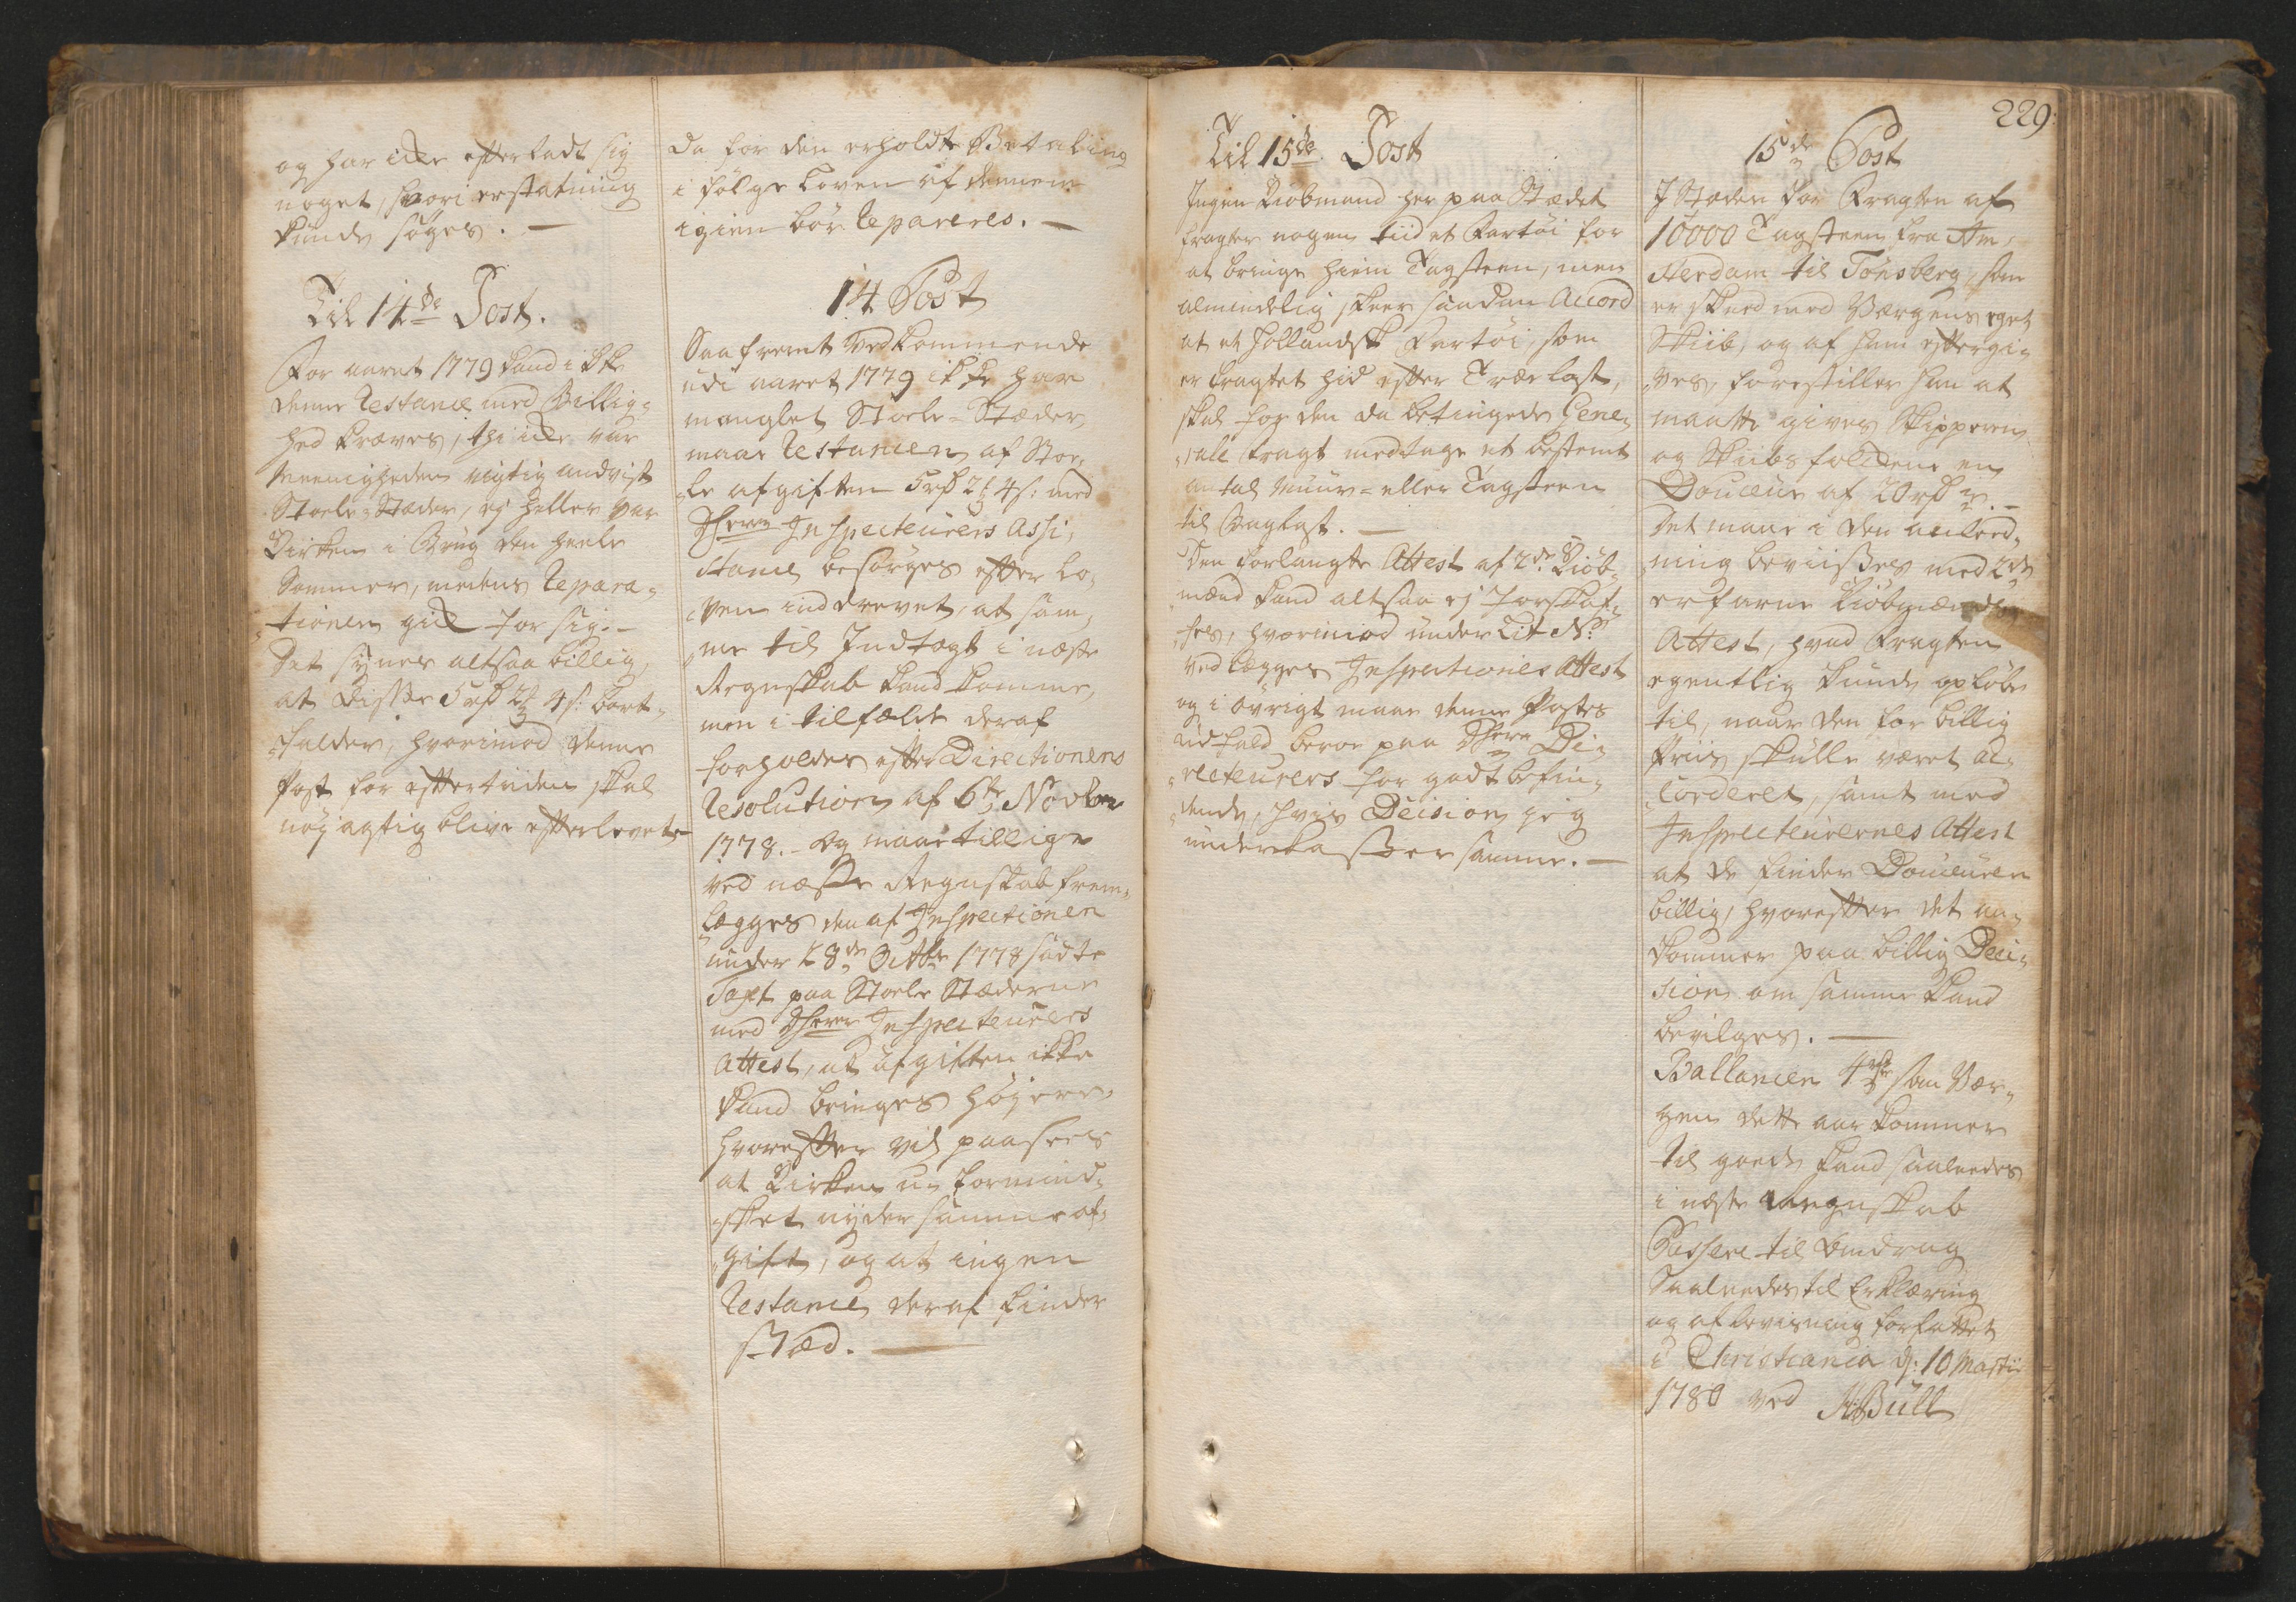 og har icke efterladt sig
noget, hvori erstatning
kunde søges. —
Til 14de Post.
For aaret 1779 kand ikke
denne Restance med Billig-
hed kræves, thi icke var
Meenigheden rigtig andvist
Stoele-Stæder, ej heller var
Kirken i Brug den heele
Sommer, medens Repara-
tionen gik for sig. —
Det synes altsaa billig,
at disse 5 rd 2 4 s: bort-
falder, hvorimod denne
Post for eftertiiden skal
nøjagtig blive efterlevet
da for den erholdte Betaling
i følge Loven af dennem
igien bør Repareres. —
14 Post
Saafremt Vedkommende
udi aaret 1779 ikke har
manglet Stoele-Stæder
maae Restancen af Stoe-
le afgiften 5 rd 2 4 s: med
Hherrer Inspecteurers Assi-
stance besørges efter Lo-
ven inddrevet, at sam-
me til Indtægt i næste
Regnskab kand komme,
men i tilfælde deraf
forholdes efter Directionens
Resolution af 6te Novbr
1778. - Og maae tillige
ved næste Regnskab frem-
lægges den af Inspectionen
under 28de Octbr 1778 satte
Taxt paa Stoele Stæderne
med Hherrer Inspecteurers
Attest, at afgiften ikke
kand bringes højere,
hvorefter vil paasees
at Kirken u-formind-
sket nyder samme af-
gift, og at ingen
Restance deraf finder
stæd. —
Til 15de Post
Ingen Kiøbmand her paa Stædet
fragter nogen tiid et Fartøi for
at bringe hiem Tagsteen, men
almindelig skeer saadan Accord
at et Hollandsk Fartøi, som
er fragtet hid efter Trælast,
skal for den da betingede Gene-
rale fragt medtage et bestemt
antal Muur- eller Tagsteen
til Baglast. —
Den forlangte Attest af 2de Kiøb-
mænd kand altsaa ej forskaf-
fes, hvorimod under Lit N:
vedlægges Inspectionens Attest
og i øvrigt maae denne Postes
udfald beroe paa Hherrer Di-
recteurers for godt befin-
dende, hvis Decision jeg
underkaster samme. —
229.
15de Post
I Stæden for Fragten af
10000 Tagsteen fra Am-
sterdam til Tønsberg, som
er skeed med Værgens eget
Skiib, og af ham eftergi-
ves, forestiller han at
maatte gives Skipperen
og Skibsfolkene en
Douceur af 20 rd. —
Det maae i den anleed-
ning beviises med 2de
erfarne Kiøbmænds
Attest, hvad Fragten
egentlig kunde opløbe
til, naar den for billig
Priis skulle været ac-
corderet, samt med
Inspecteurernes Attest
at de finder Douceuren
billig, hvorefter det an-
kommer paa billig Deci-
sion om samme kand
bevilges. —
Ballancen 4 som Vær-
gen dette aar kommer
til goede kand saaledes
i næste Regnskab
Passere til Bedrag
Saaledes til Erklæring
og afbeviisning forfattet
i Christiania d: 10 Martii
1780 ved Bull